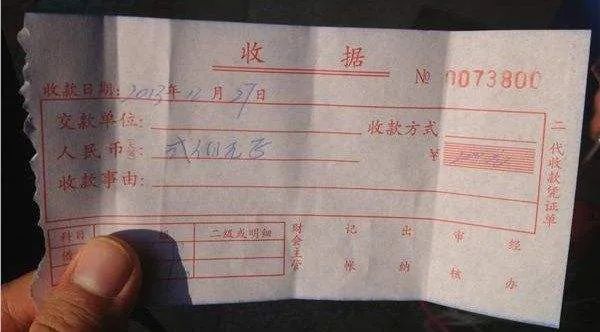 收据
№ 0073800
收款日期: 2013年11月27日
交款单位: 收款方式
人民币(大写): 贰佰元整 ¥
收款事由:
二代收款凭证单
科目 二级或明细
借
财会主管 记帐 出纳 审核 经办